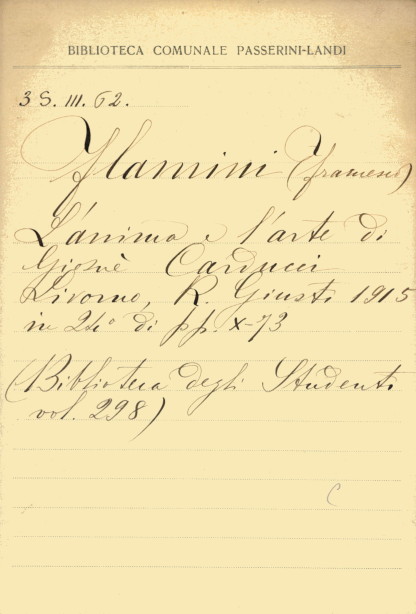 BIBLIOTECA COMUNALE PASSERINI-LANDI
3 S. III. 62.
Flamini (Francesco)
L'anima e l'arte di
Giosuè Carducci
Livorno, R. Giusti 1915
in 24° di pp. X-73
(Biblioteca degli Studenti
vol. 298)
C